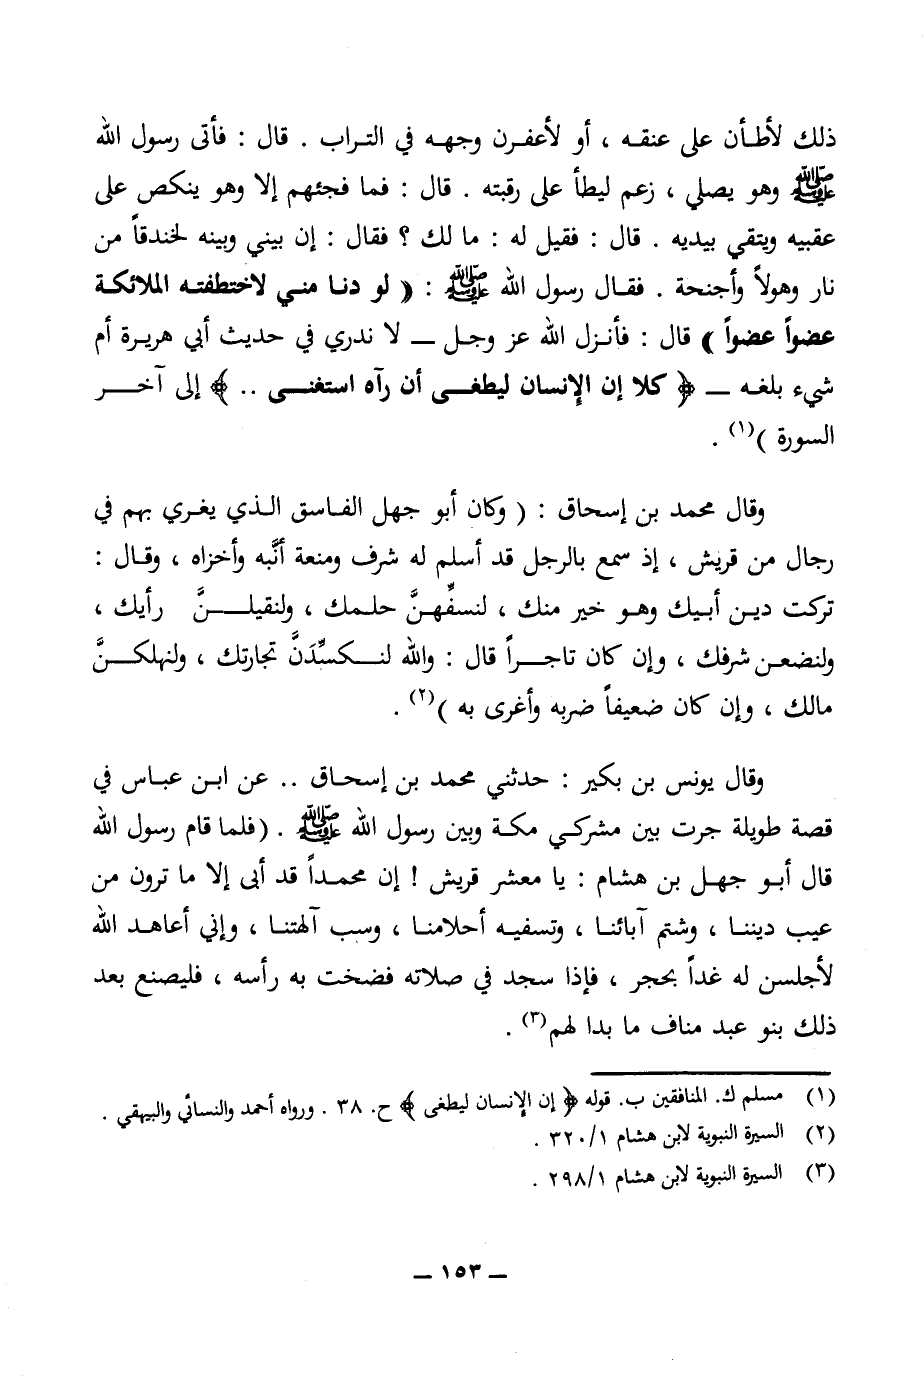 ذلك لأطأن على عنقه ، أو لأعفرن وجهه في التراب . قال : فأتى رسول الله
ﷺ وهو يصلي ، زعم ليطأ على رقبته . قال : فما فجئهم إلا وهو ينكص على
عقبيه ويتقي بيديه . قال : فقيل له : ما لك ؟ فقال : إن بيني وبينه لخندقاً من
نار وهولاً وأجنحة . فقال رسول الله ﷺ : ( لو دنا مني لاختطفته الملائكة
عضواً عضواً ) قال : فأنزل الله عز وجل ــ لا ندري في حديث أبي هريرة أم
شيء بلغه ــ ﴿ كلا إن الإنسان ليطغى أن رآه استغنى .. ﴾ إلى آخر
السورة )(١) .
وقال محمد بن إسحاق : ( وكان أبو جهل الفاسق الذي يغري بهم في
رجال من قريش ، إذ سمع بالرجل قد أسلم له شرف ومنعة أنَّبه وأخزاه ، وقال :
تركت دين أبيك وهو خير منك ، لنسفِّهنَّ حلمك ، ولنقيلنَّ رأيك ،
ولنضعن شرفك ، وإن كان تاجراً قال : والله لنكسِّدَنَّ تجارتك ، ولنهلكنَّ
مالك ، وإن كان ضعيفاً ضربه وأغرى به )(٢) .
وقال يونس بن بكير : حدثني محمد بن إسحاق .. عن ابن عباس في
قصة طويلة جرت بين مشركي مكة وبين رسول الله ﷺ . (فلما قام رسول الله
قال أبو جهل بن هشام : يا معشر قريش ! إن محمداً قد أبى إلا ما ترون من
عيب ديننا ، وشتم آبائنا ، وتسفيه أحلامنا ، وسب آلهتنا ، وإني أعاهد الله
لأجلسن له غداً بحجر ، فإذا سجد في صلاته فضخت به رأسه ، فليصنع بعد
ذلك بنو عبد مناف ما بدا لهم(٣) .
(١) مسلم ك. المنافقين ب. قوله ﴿ إن الإنسان ليطغى ﴾ ح. ٣٨ . ورواه أحمد والنسائي والبيهقي .
(٢) السيرة النبوية لابن هشام ٣٢٠/١ .
(٣) السيرة النبوية لابن هشام ٢٩٨/١ .
ــ ١٥٣ ــ